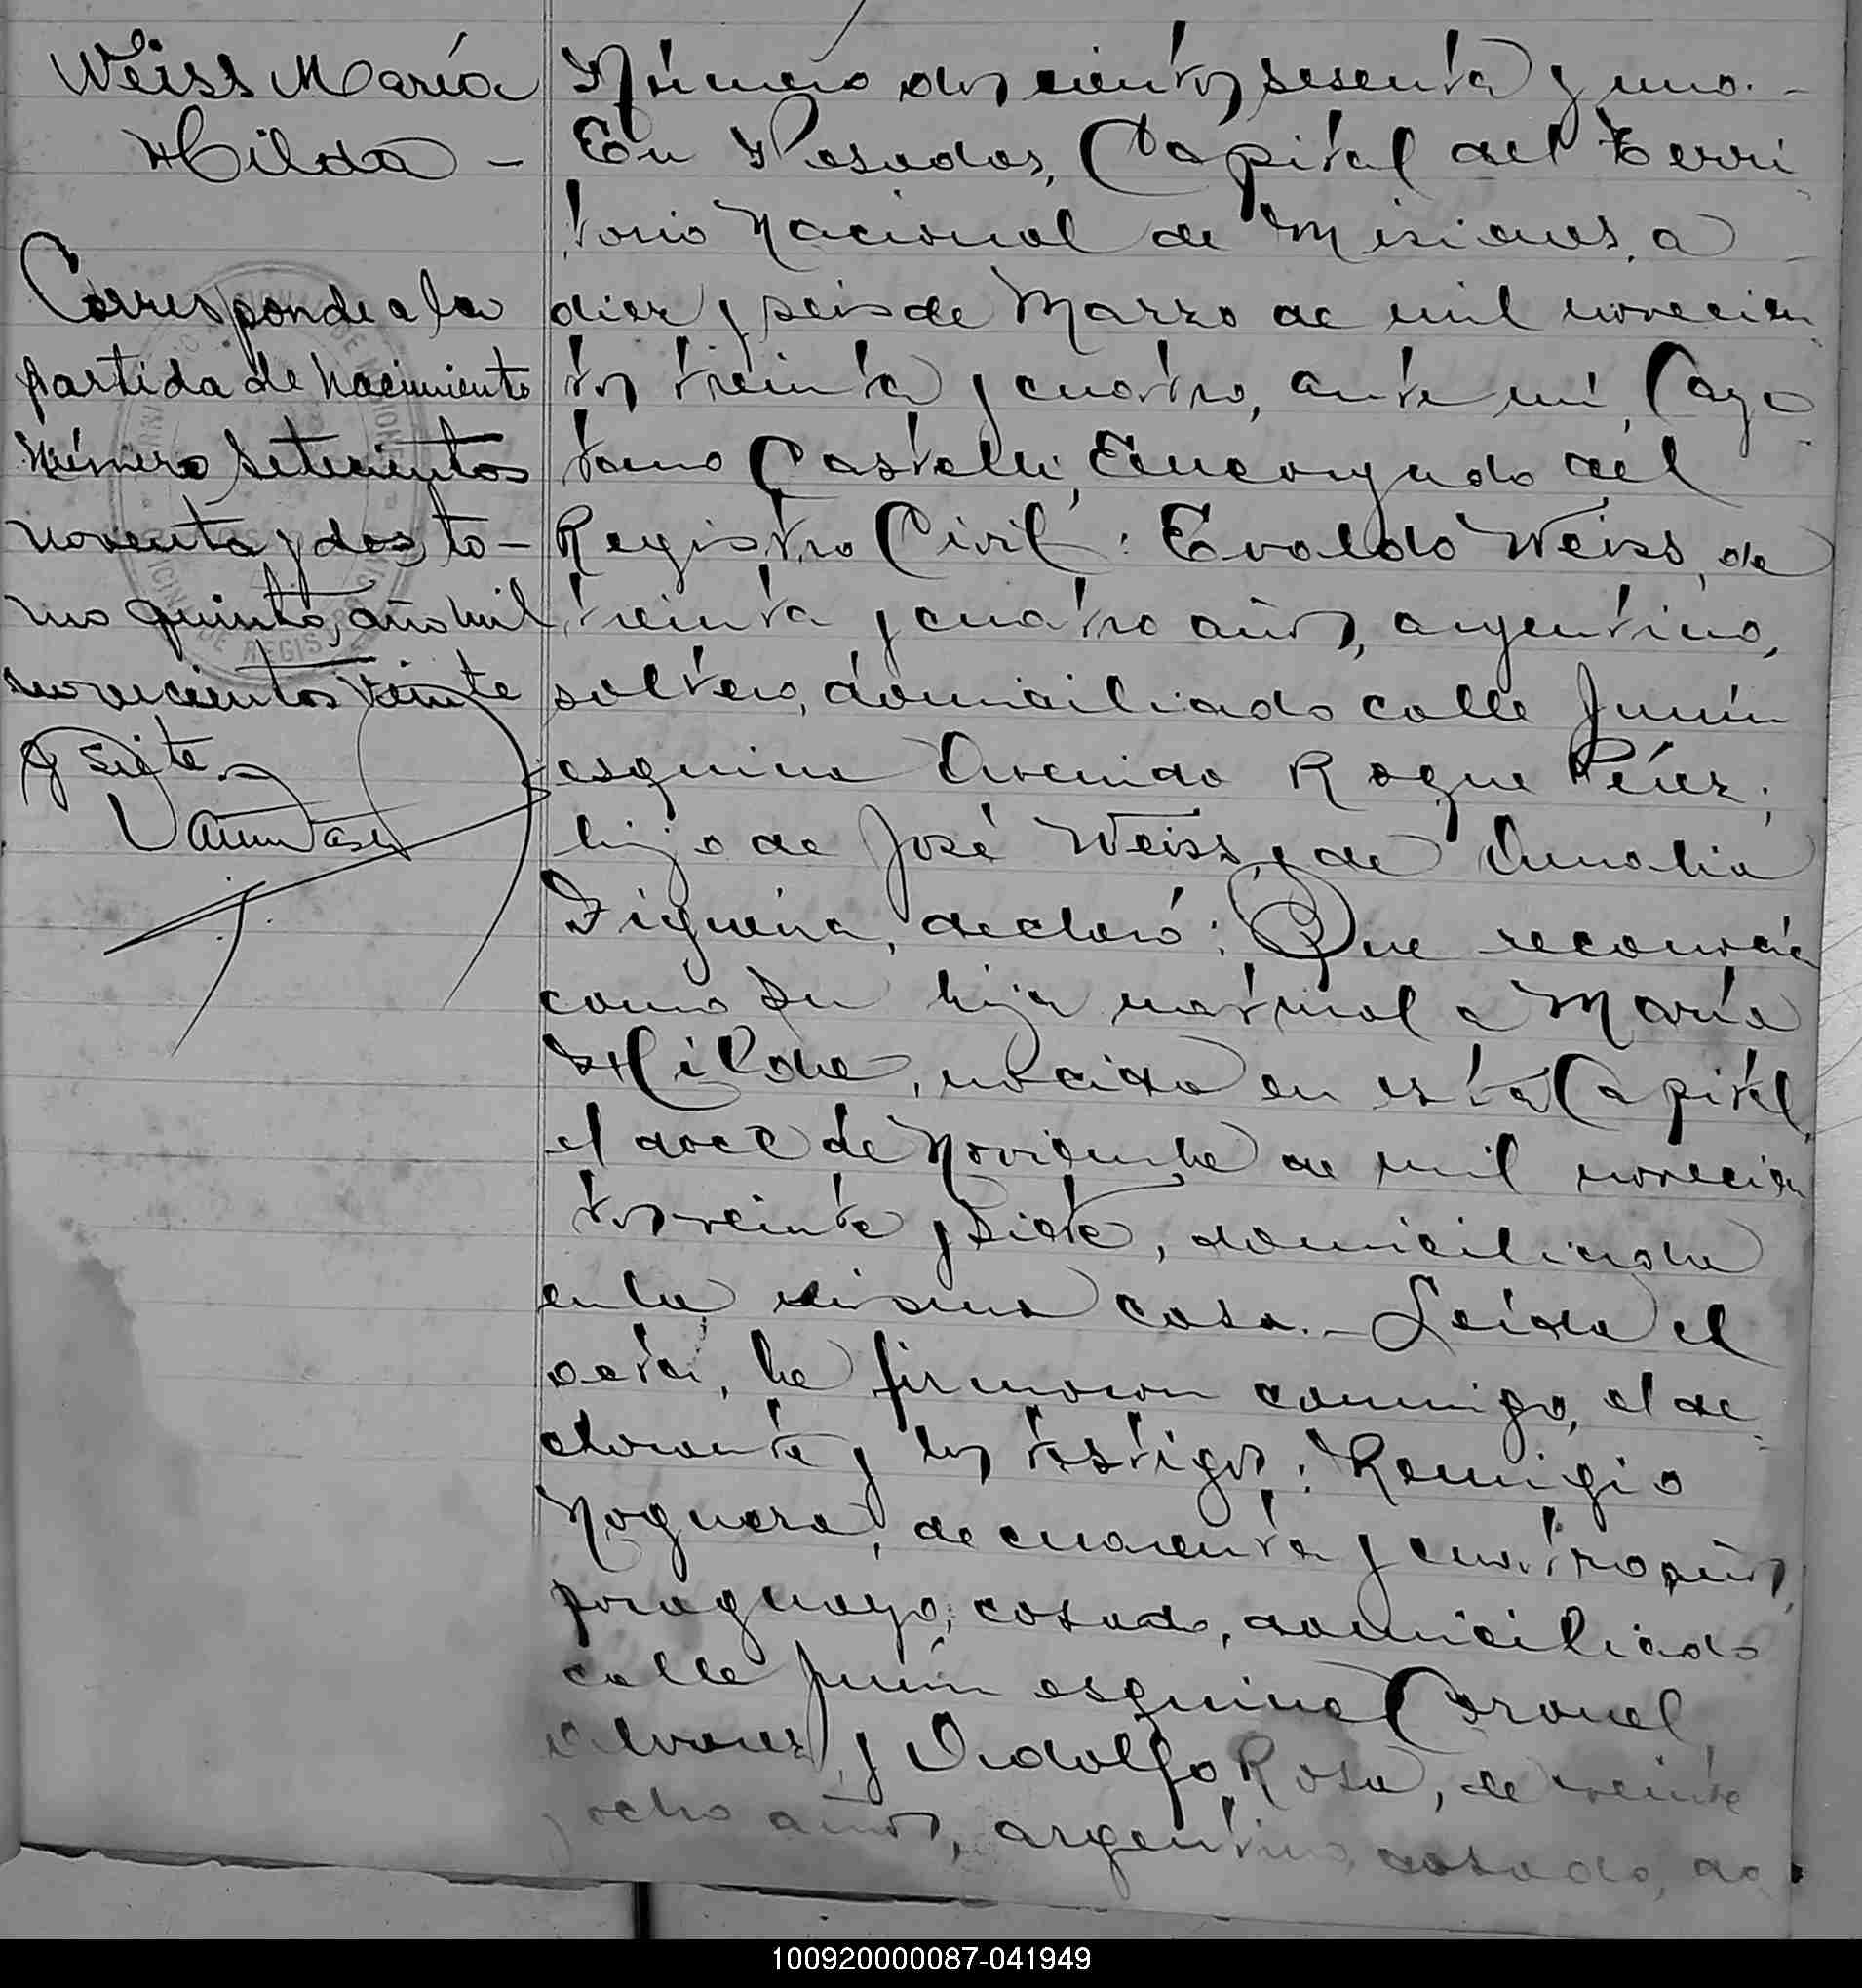 Weiss María
Hilda -
Corresponde a la
partida de nacimiento
número setecientos
noventa y dos, to-
mo quinto, año mil
novecientos veinte
y siete.
Número doscientos sesenta y uno. -
En Posadas, Capital del Terri
torio Nacional de Misiones, a
diez y seis de Marzo de mil novecien
tos treinta y cuatro, ante mí, Caye
tano Castelli, Encargado del
Registro Civil: Evaldo Weiss, de
treinta y cuatro años, argentino,
soltero, domiciliado calle Junín
esquina Avenida Roque Pérez;
hijo de José Weiss y de Amalia
declaró: Que reconocía
como su hija natural a María
Hilda, nacida en esta Capital,
el doce de Noviembre de mil novecien
tos veinte y siete, domiciliada
en la misma casa. - Leída el
acta, la firmaron conmigo, el de
clarante y los testigos: Remigio
Noguera, de cuarenta y cuatro años,
paraguayo, casado, domiciliado
calle Junín esquina Coronel
Alvarez, y Adolfo Rosa, de veinte
y ocho años, argentino, casado, do
100920000087-041949